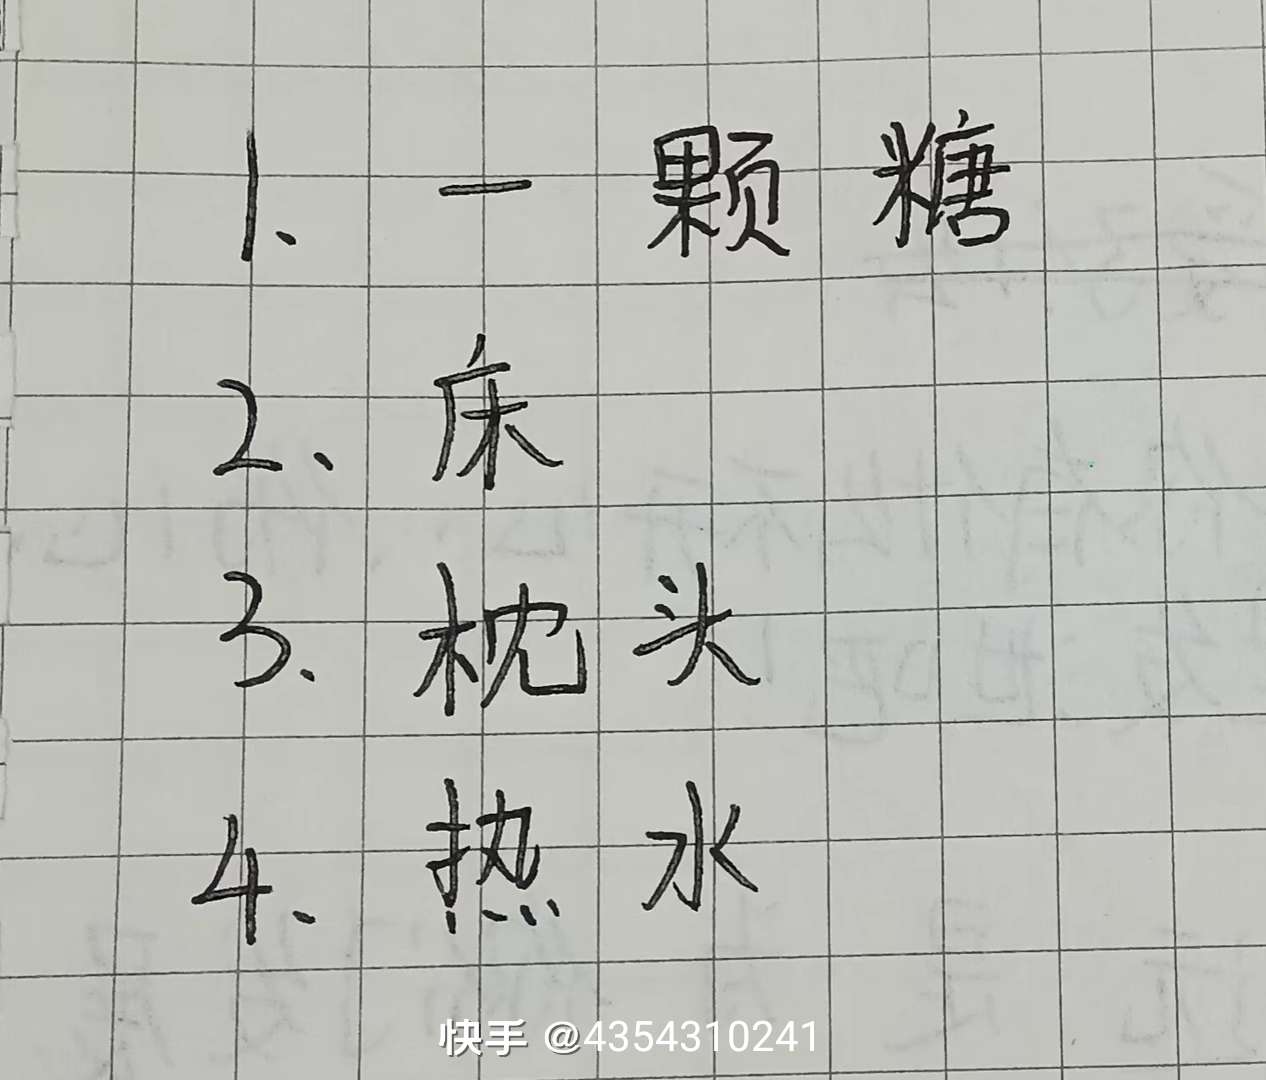 1、一颗糖
2、床
3、枕头
4、热水
快手 @4354310241